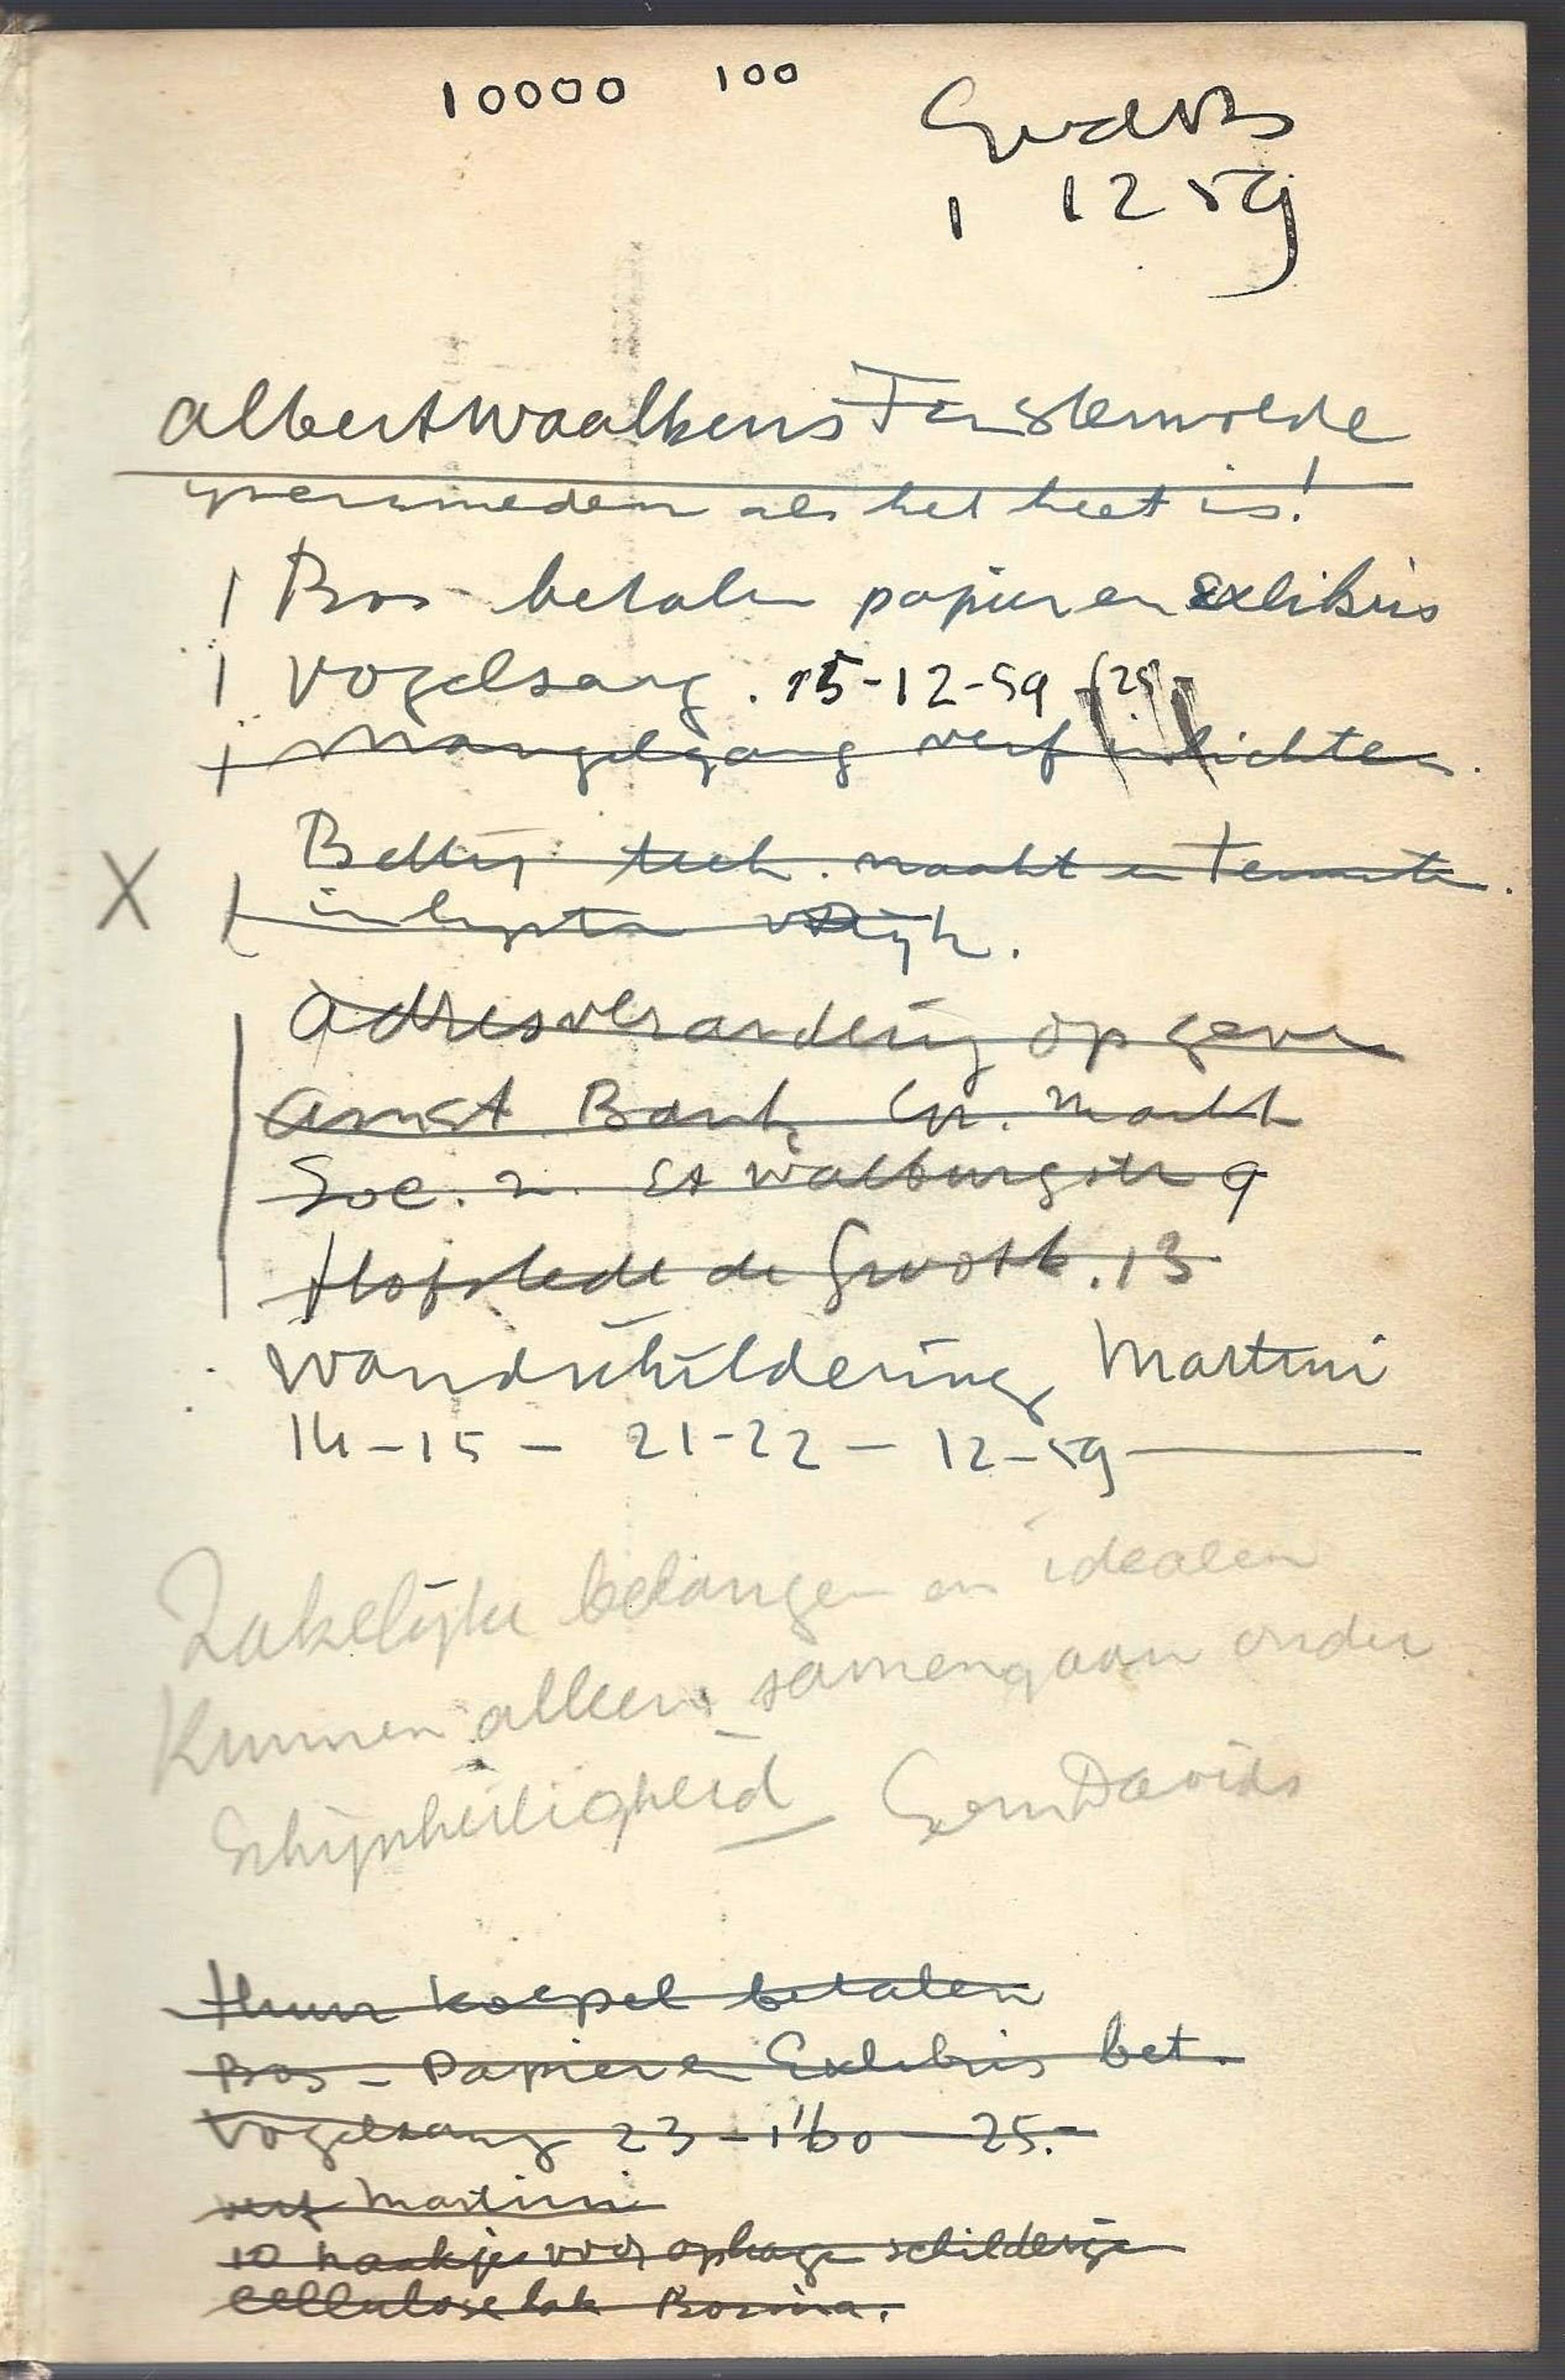 10000 100
1 12 59
Albert Waalkens Finsterwolde
yzersmeden als het heet is!
Bos betalen papier en Exlibris
Vogelsang. 15-12-59 (25,-
Mangelgang verf inlichten.
Betty teek. naakt en
in lijsten
adresverandering opgeven
Amst Bank Gr. Markt
Soc. Z. St Walburgstr 9
Hofstede de Grootk. 13
Wandschildering Martini
14-15 - 21-22 - 12-59
Zakelijke belangen en idealen
Kunnen alleen samengaan onder
Schijnheiligheid — Gern Davids
Huur koepel betalen
Bos - Papier en Exlibris bet.
Vogelsang 23-1'60 25.-
verf Martini
10 haakjes voor ophangen schilderijen
Celluloselak Bosma.